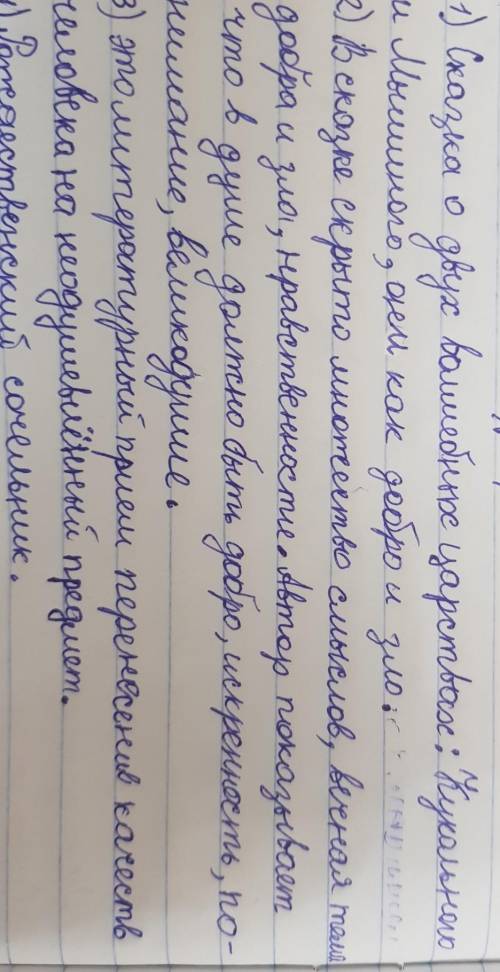 1) Сказка о двух волшебных царствах: Кукольного
и Мышиного, они как добро и зло.
2) В сказке скрыто множество смыслов, вечная тема
добра и зла, нравственности. Автор показывает
что в душе должно быть добро, искренность, по-
нимание, великодушие.
3) это литературный прием перенжение качеств
человека на неодушевлённый предмет.
Рождественский сочельник.